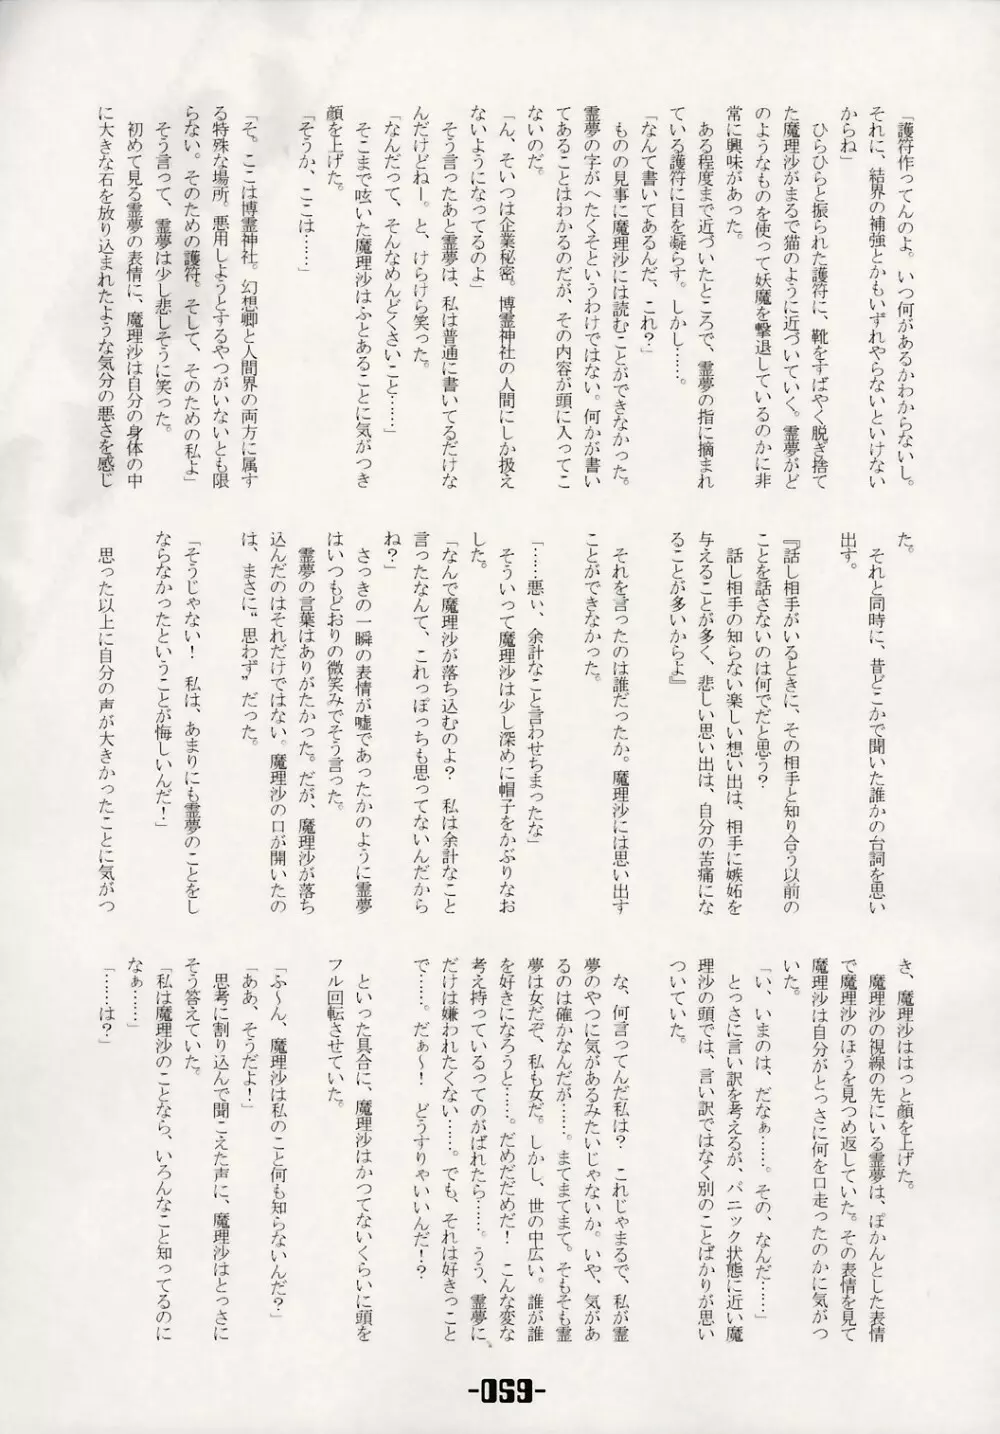 「護符作ってんのよ。いつ何があるかわからないし。
それに、結界の補強とかもいずれやらないといけない
からね」
ひらひらと振られた護符に、靴をすばやく脱ぎ捨て
た魔理沙がまるで猫のように近づいていく。霊夢がど
のようなものを使って妖魔を撃退しているのかに非
常に興味があった。
ある程度まで近づいたところで、霊夢の指に摘まれ
ている護符に目を凝らす。しかし……。
「なんて書いてあるんだ、これ?」
ものの見事に魔理沙には読むことができなかった。
霊夢の字がへたくそというわけではない。何かが書い
てあることはわかるのだが、その内容が頭に入ってこ
ないのだ。
「ん、そいつは企業秘密。博霊神社の人間にしか扱え
ないようになってるのよ」
そう言ったあと霊夢は、私は普通に書いてるだけな
んだけどねー。と、けらけら笑った。
「なんだって、そんなめんどくさいこと……」
そこまで呟いた魔理沙はふとあることに気がつき
顔を上げた。
「そうか、ここは……」
「そ。ここは博霊神社。幻想卿と人間界の両方に属す
る特殊な場所。悪用しようとするやつがいないとも限
らない。そのための護符。そして、そのための私よ」
そう言って、霊夢は少し悲しそうに笑った。
初めて見る霊夢の表情に、魔理沙は自分の身体の中
に大きな石を放り込まれたような気分の悪さを感じ
た。
それと同時に、昔どこかで聞いた誰かの台詞を思い
出す。
『話し相手がいるときに、その相手と知り合う以前の
ことを話さないのは何でだと思う?
話し相手の知らない楽しい想い出は、相手に嫉妬を
与えることが多く、悲しい思い出は、自分の苦痛にな
ることが多いからよ』
それを言ったのは誰だったか。魔理沙には思い出す
ことができなかった。
「……悪い、余計なこと言わせちまったな」
そういって魔理沙は少し深めに帽子をかぶりなお
した。
「なんで魔理沙が落ち込むのよ? 私は余計なこと
言ったなんて、これっぽっちも思ってないんだから
ね?」
さっきの一瞬の表情が嘘であったかのように霊夢
はいつもどおりの微笑みでそう言った。
霊夢の言葉はありがたかった。だが、魔理沙が落ち
込んだのはそれだけではない。魔理沙の口が開いたの
は、まさに〝思わず〟だった。
「そうじゃない! 私は、あまりにも霊夢のことをし
ならなかったということが悔しいんだ!」
思った以上に自分の声が大きかったことに気がつ
き、魔理沙ははっと顔を上げた。
魔理沙の視線の先にいる霊夢は、ぽかんとした表情
で魔理沙のほうを見つめ返していた。その表情を見て
魔理沙は自分がとっさに何を口走ったのかに気がつ
いた。
「い、いまのは、だなぁ……。その、なんだ……」
とっさに言い訳を考えるが、パニック状態に近い魔
理沙の頭では、言い訳ではなく別のことばかりが思い
ついていた。
な、何言ってんだ私は? これじゃまるで、私が霊
夢のやつに気があるみたいじゃないか。いや、気があ
るのは確かなんだが……。まてまてまて。そもそも霊
夢は女だぞ、私も女だ。しかし、世の中広い。誰が誰
を好きになろうと……。だめだだめだ! こんな変な
考え持っているってのがばれたら……。うう、霊夢に
だけは嫌われたくない……。でも、それは好きっこと
で……。だぁ～! どうすりゃいいんだ!?
といった具合に、魔理沙はかつてないくらいに頭を
フル回転させていた。
「ふ～ん、魔理沙は私のこと何も知らないんだ?」
「ああ、そうだよ!」
思考に割り込んで聞こえた声に、魔理沙はとっさに
そう答えていた。
「私は魔理沙のことなら、いろんなこと知ってるのに
なぁ……」
「……は?」
-059-